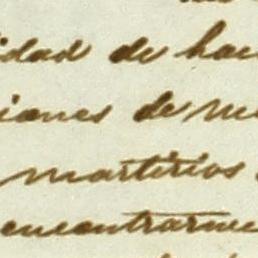 idad de hac
iones de me
martirios
encontrarme